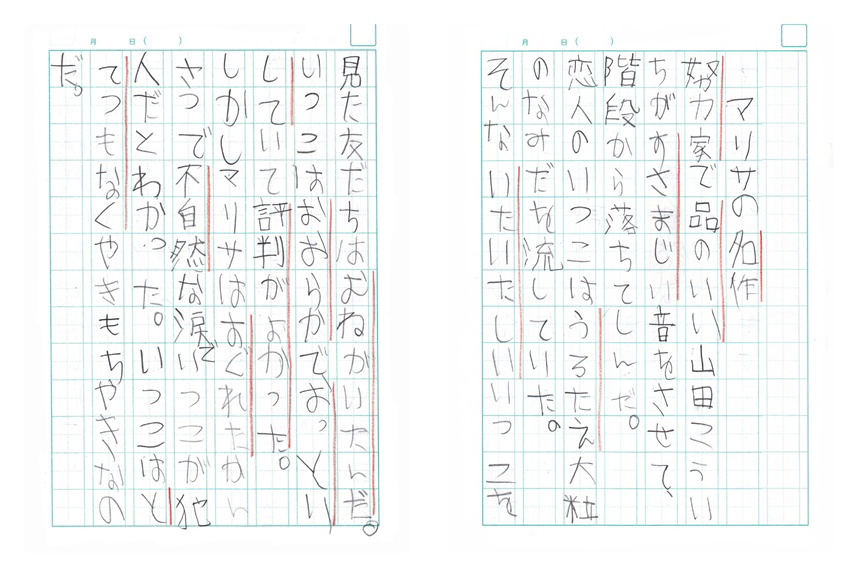 月 日( )
マリサの名作
努力家で品のいい山田こうい
ちがすさまじい音をさせて、
階段から落ちてしんだ。
恋人のいつこはうろたえ大粒
のなみだを流していた。
そんないたいたしいいつこを
月 日( )
見た友だちはむねがいたんだ。
いつこはおおらかでおっとり
していて評判がよかった。
しかしマリサはすぐれたかん
さつで不自然な涙でいつこが犯
人だとわかった。いつこはと
てつもなくやきもちやきなの
だ。